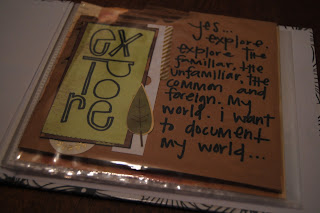 explore
yes...
explore.
explore the
familiar, the
unfamiliar, the
common and
foreign. my
world. i want
to document
my world...